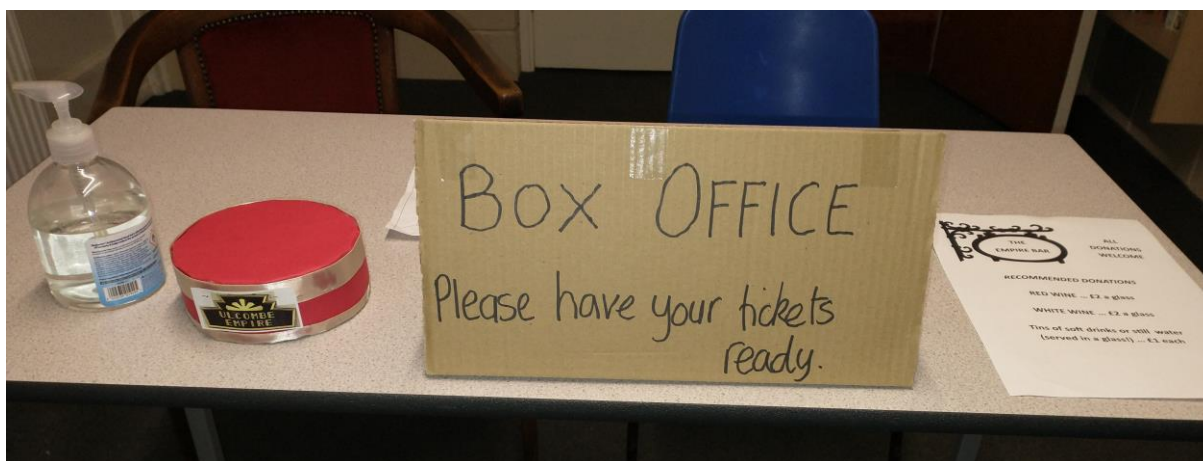 ULCOMBE
EMPIRE
BOX OFFICE
Please have your tickets
ready.
THE
EMPIRE BAR
ALL
DONATIONS
WELCOME
RECOMMENDED DONATIONS
RED WINE ... £2 a glass
WHITE WINE ... £2 a glass
Tins of soft drinks or still water
(served in a glass!) ... £1 each